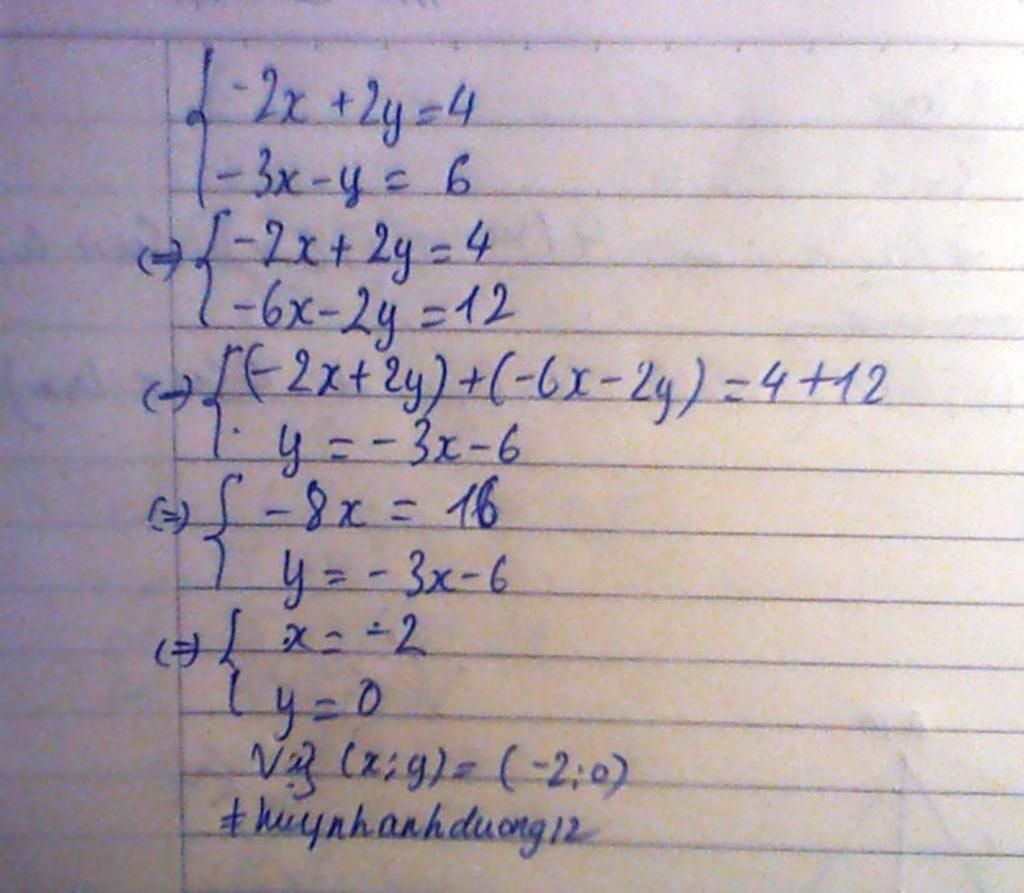 { -2x + 2y = 4
-3x - y = 6
(=) { -2x + 2y = 4
-6x - 2y = 12
(=) { (-2x + 2y) + (-6x - 2y) = 4 + 12
y = -3x - 6
(=) { -8x = 16
y = -3x - 6
(=) { x = -2
y = 0
Vậy (x; y) = (-2; 0)
# huynhanhduong12